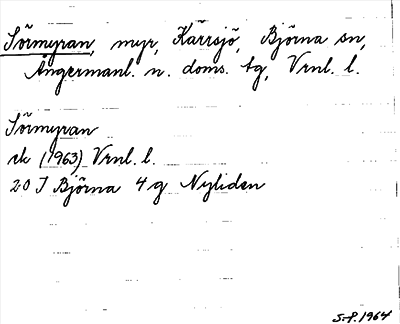 Sörmyran, myr, Kärrsjö, Björna sn,
Ångermanl. n. doms. tg, Vrnl. l.
Sörmyran
ek (1963) Vrnl. l.
20 I Björna 4 g Nyliden
S-P. 1964